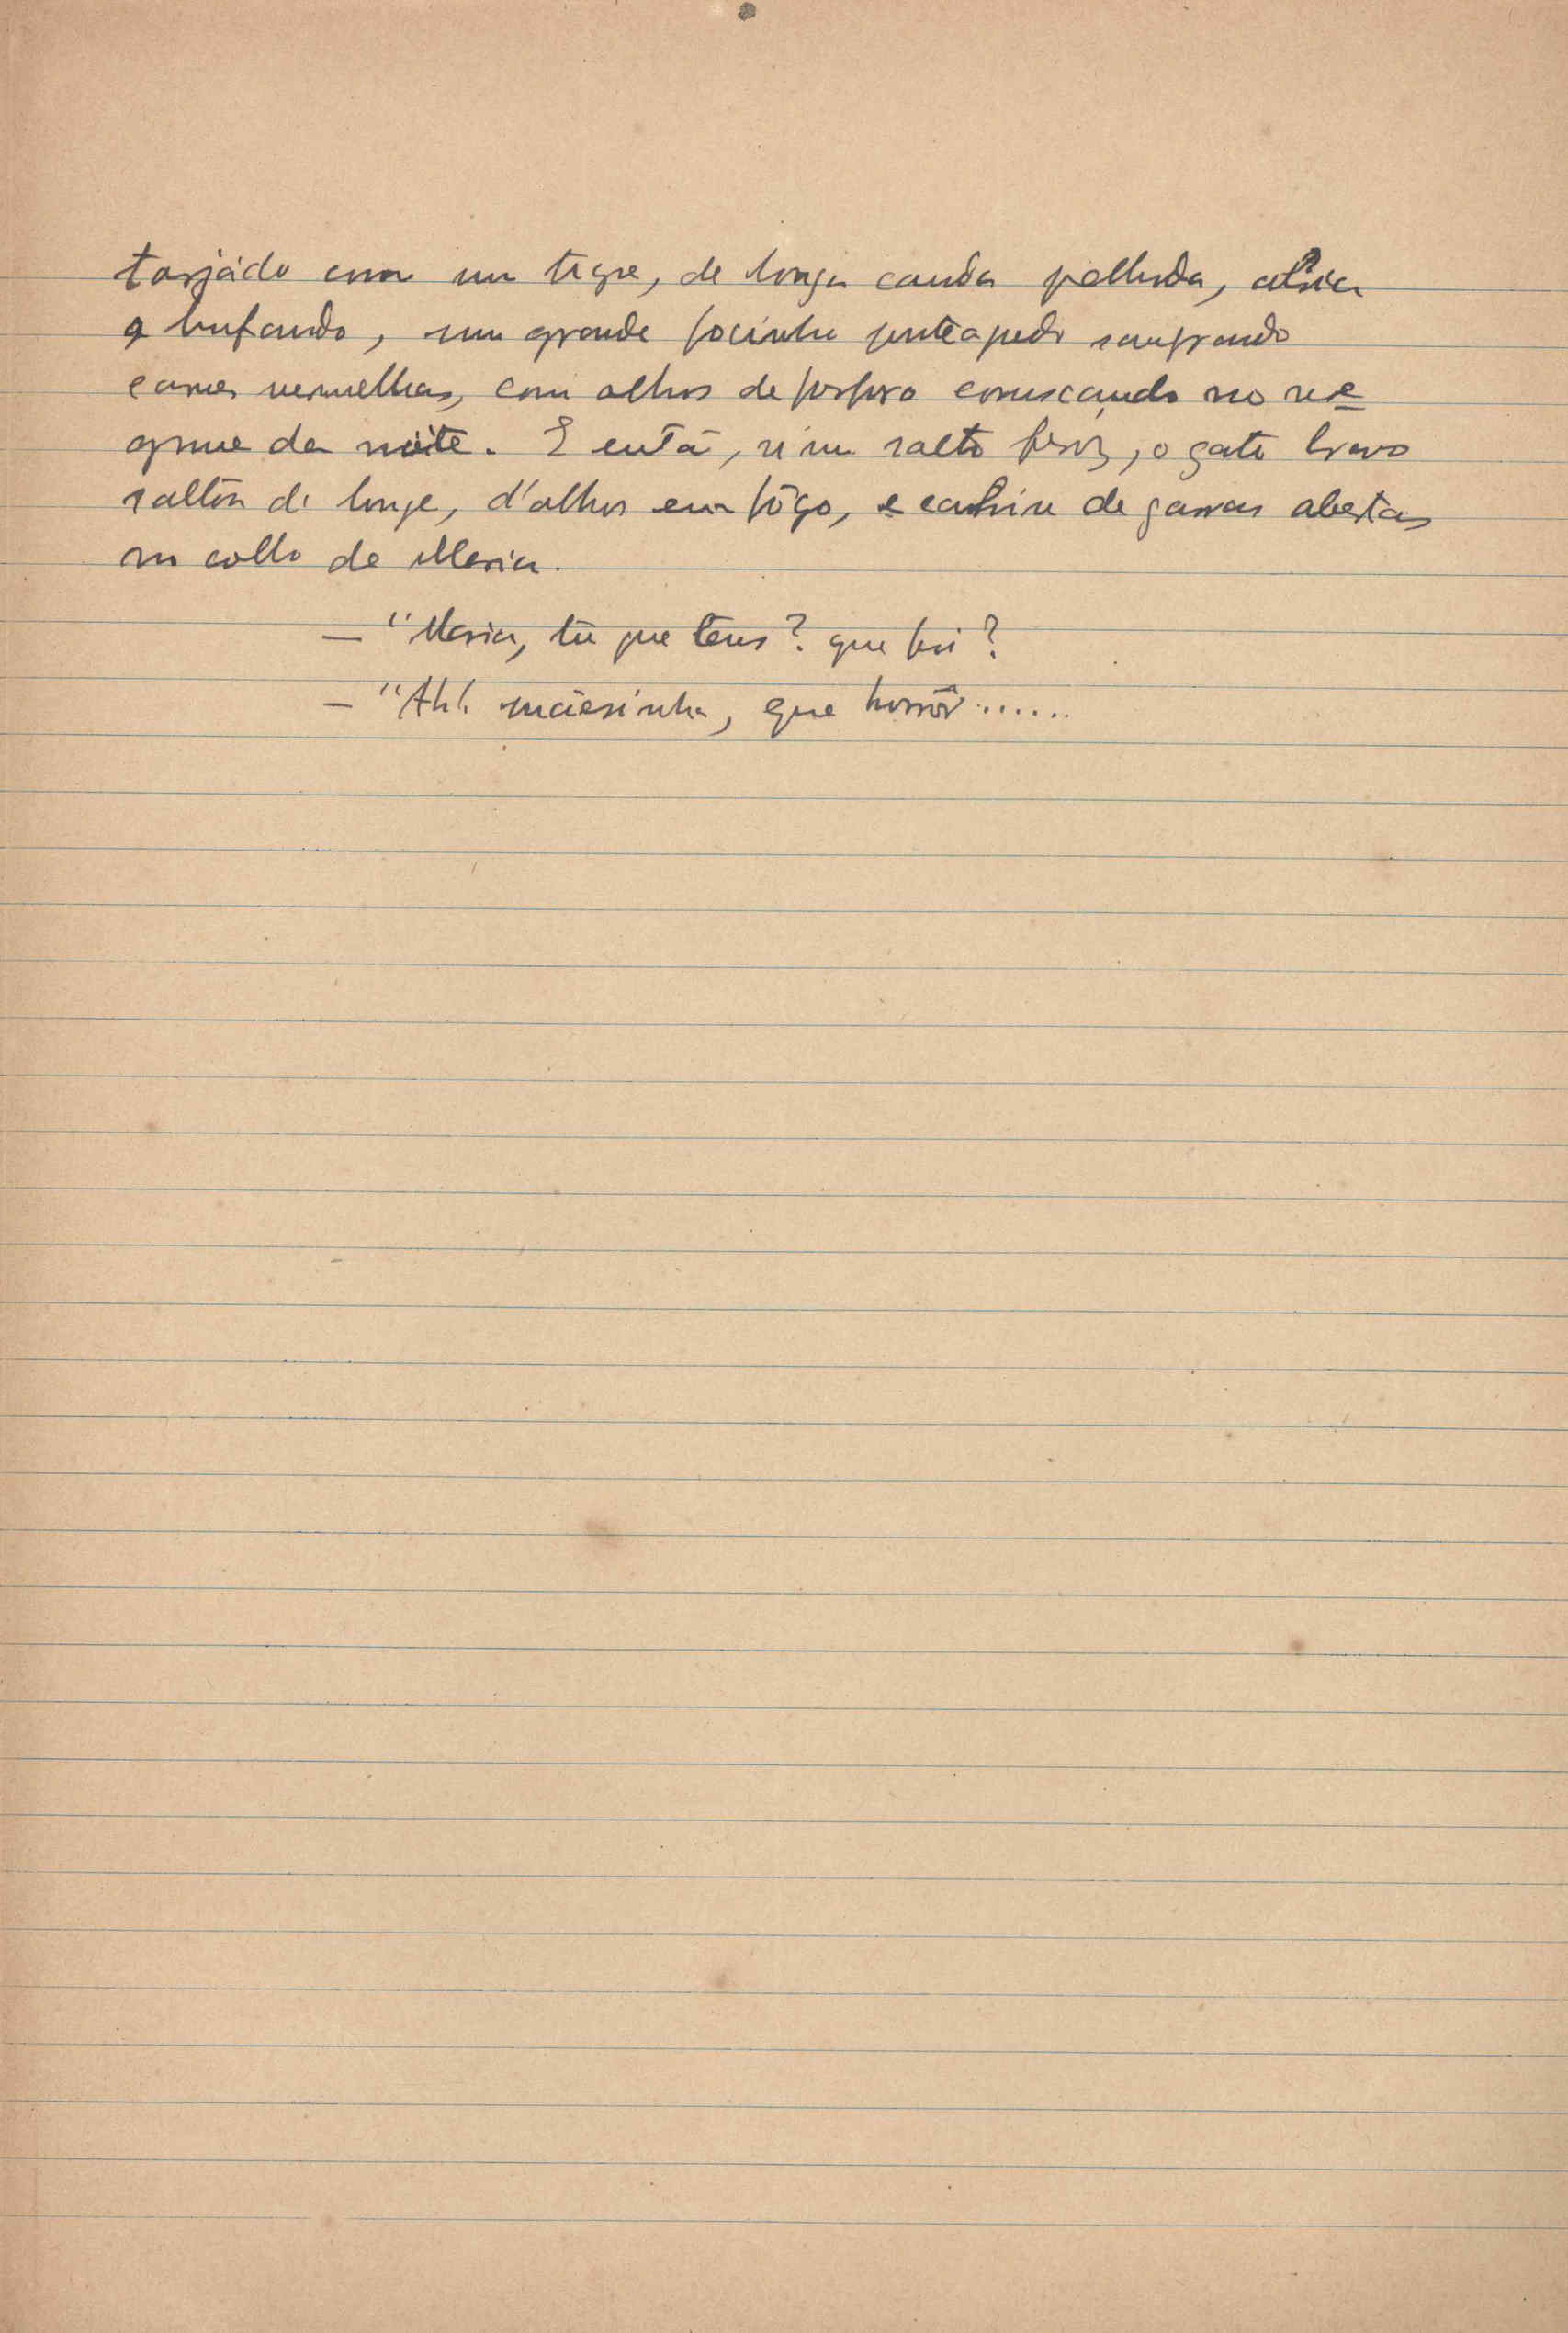 tarjádo com um tigre, de longa cauda pelluda, abria
a bufando, um grande focinho ponteagudo sangrando
carnes vermelhas, com olhos de fosforo coruscando no ne
grume da noite. E então, n'um salto feroz, o gato bravo
saltou de longe, d'olhos em fôgo, e cahiu de garras abertas
no collo de Maria.
— "Maria, tu que tens? que foi?
— "Ah! mãesinha, que horrôr......